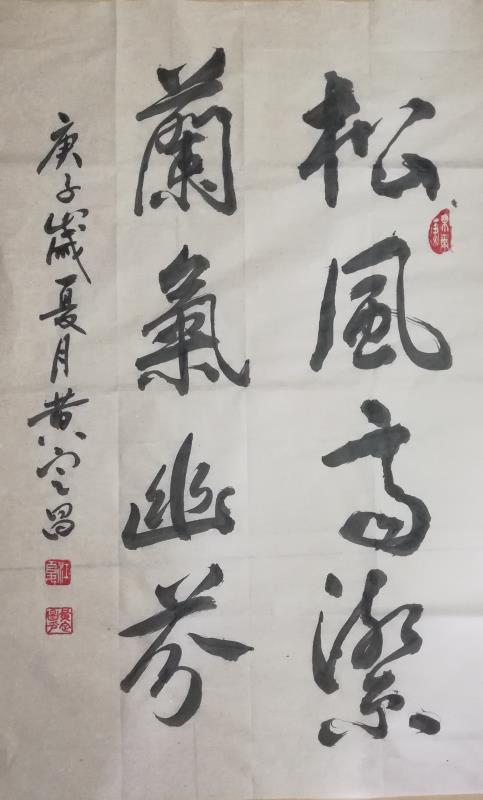 松風高潔
蘭氣幽芬
庚子歲夏月黄定昌